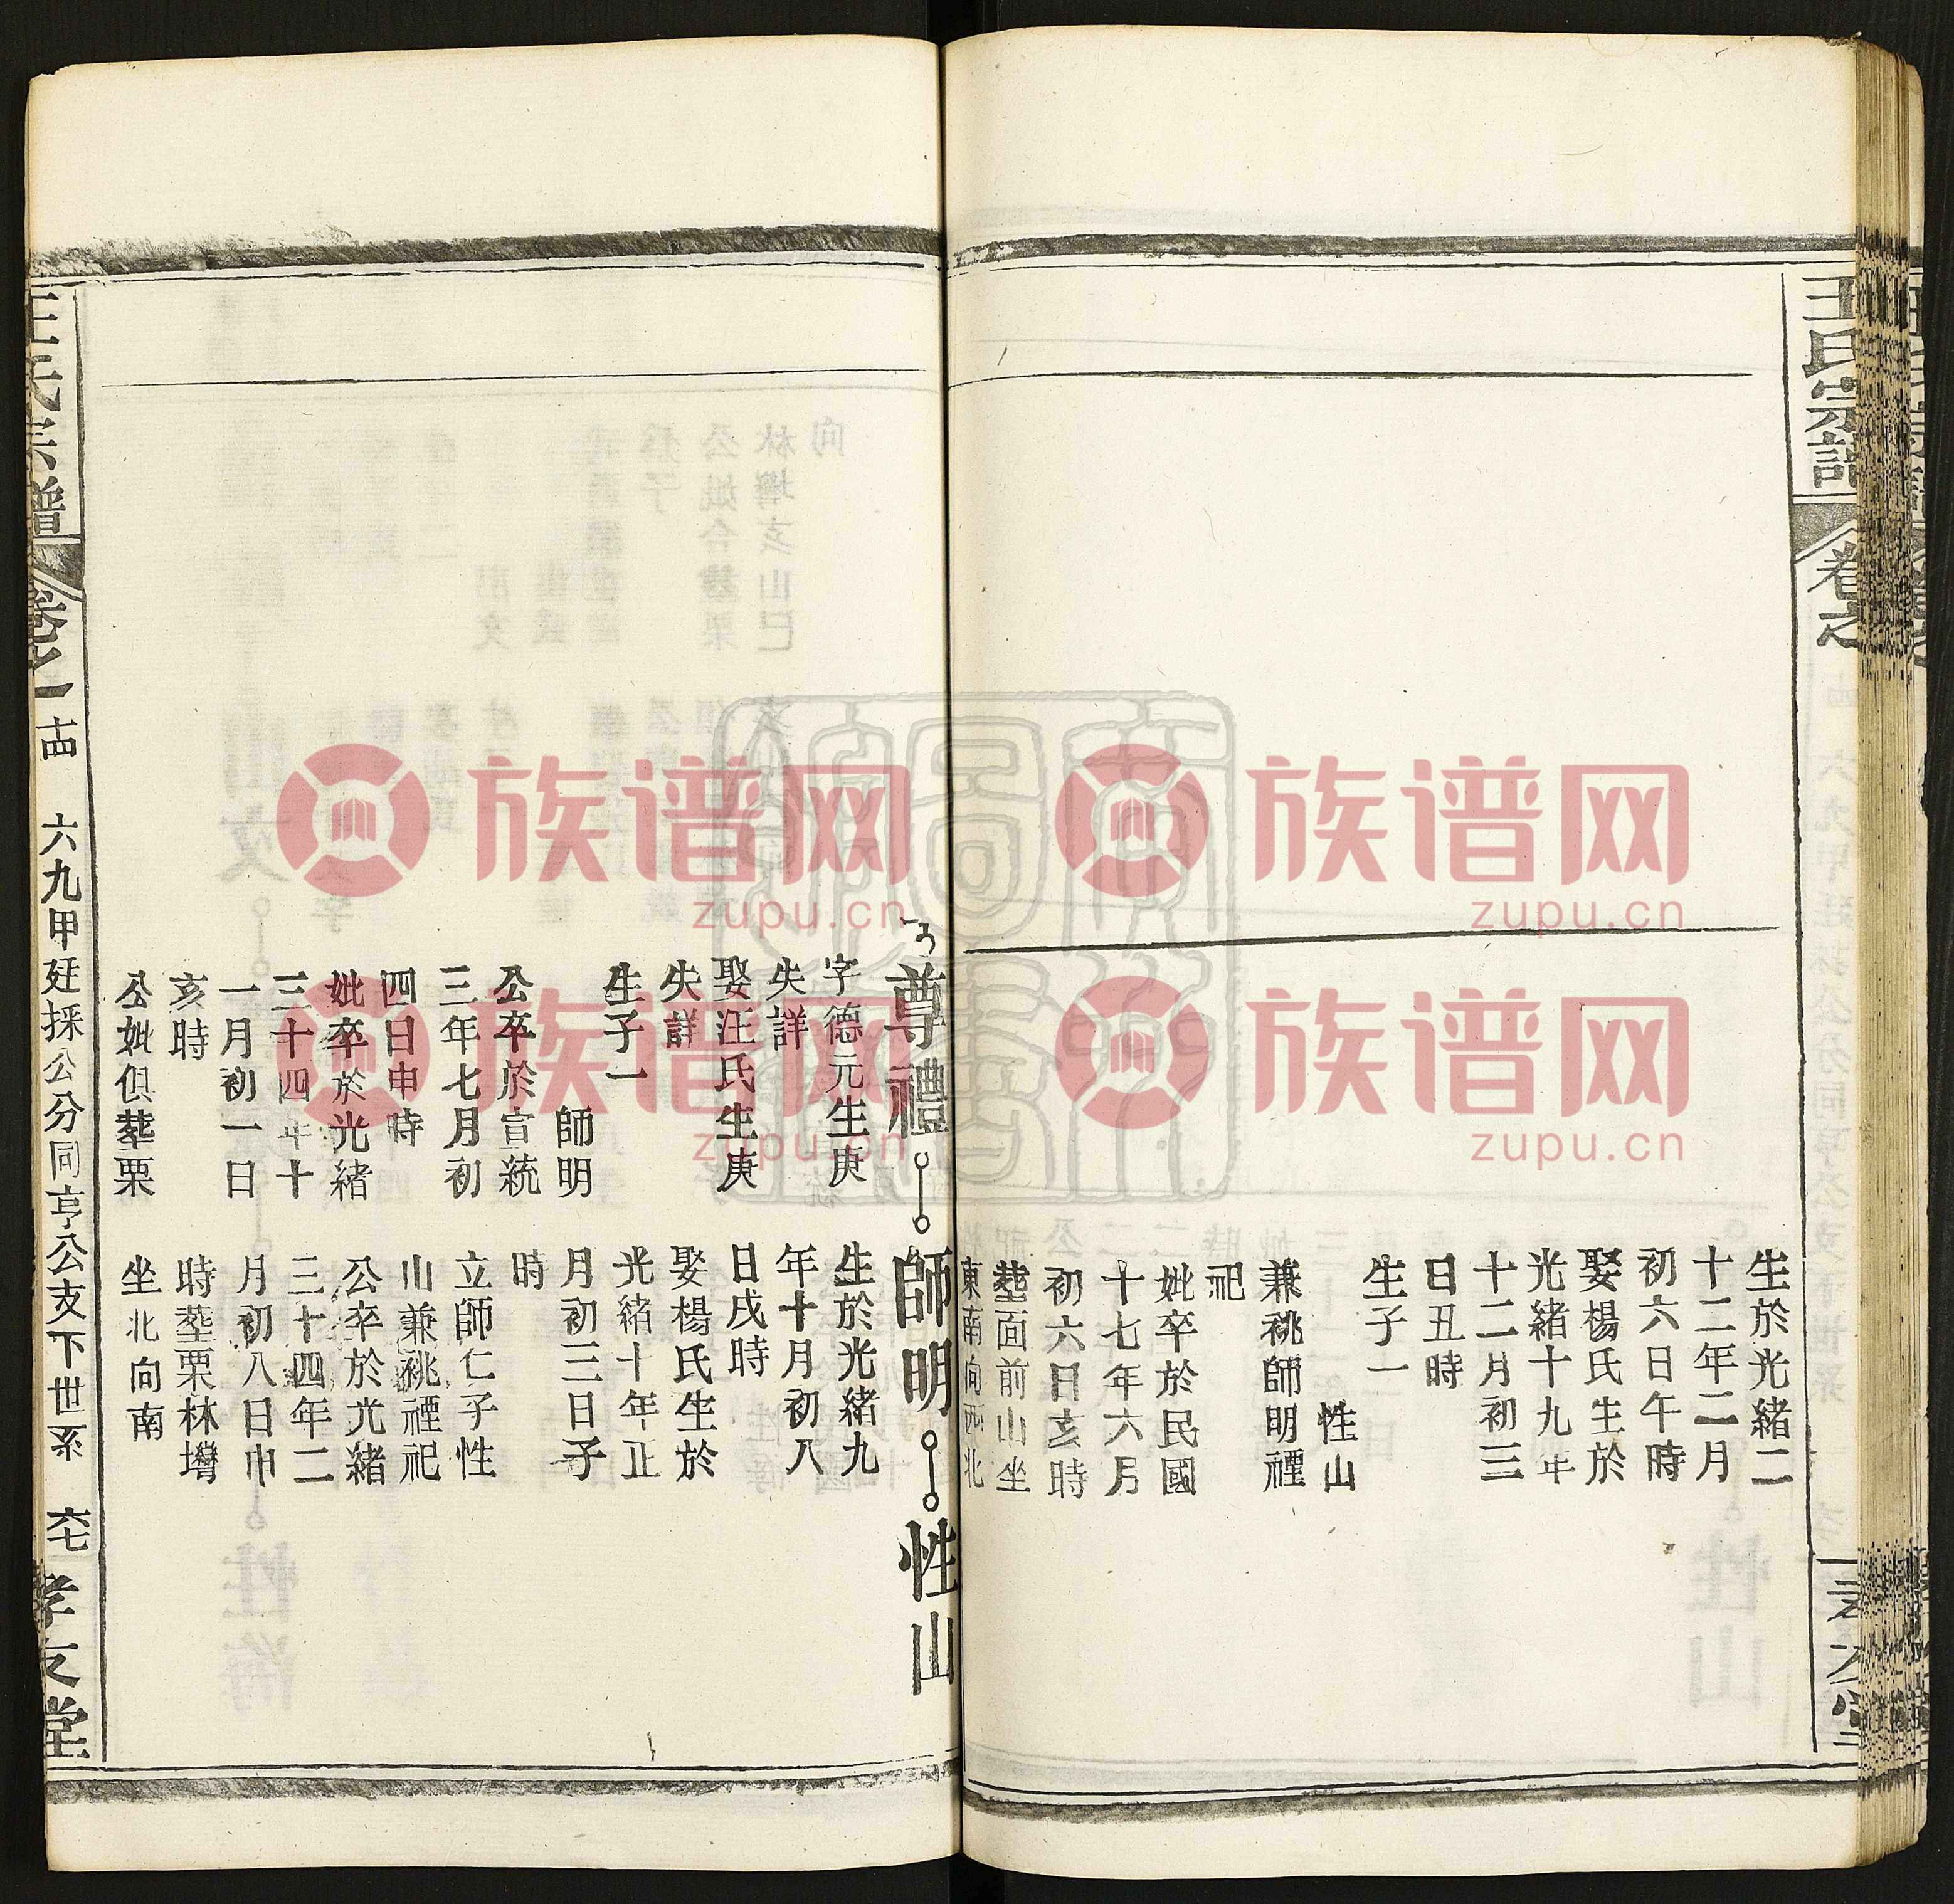 王氏宗譜
卷之
生於光緒二
十二年二月
初六日午時
娶楊氏生於
光緒十九年
十二月初三
日丑時
生子一
性山
兼祧師明禋
祀
妣卒於民國
十七年六月
初六日亥時
塟面前山坐
東南向西北
尊禮
師明
性山
字德元生庚
失詳
娶汪氏生庚
失詳
生子一
師明
公卒於宣統
三年七月初
四日申時
妣卒於光緒
三十四年十
一月初一日
亥時
公妣俱塟栗
生於光緒九
年十月初八
日戌時
娶楊氏生於
光緒十年正
月初三日子
時
立師仁子性
山兼祧禋祀
公卒於光緒
三十四年二
月初八日巾
時塟栗林塆
坐北向南
王氏宗譜
卷之一
六九甲廷採公分同亨公支下世系
六七
孝友堂
族谱网
zupu.cn
族谱网
zupu.cn
族谱网
zupu.cn
族谱网
zupu.cn